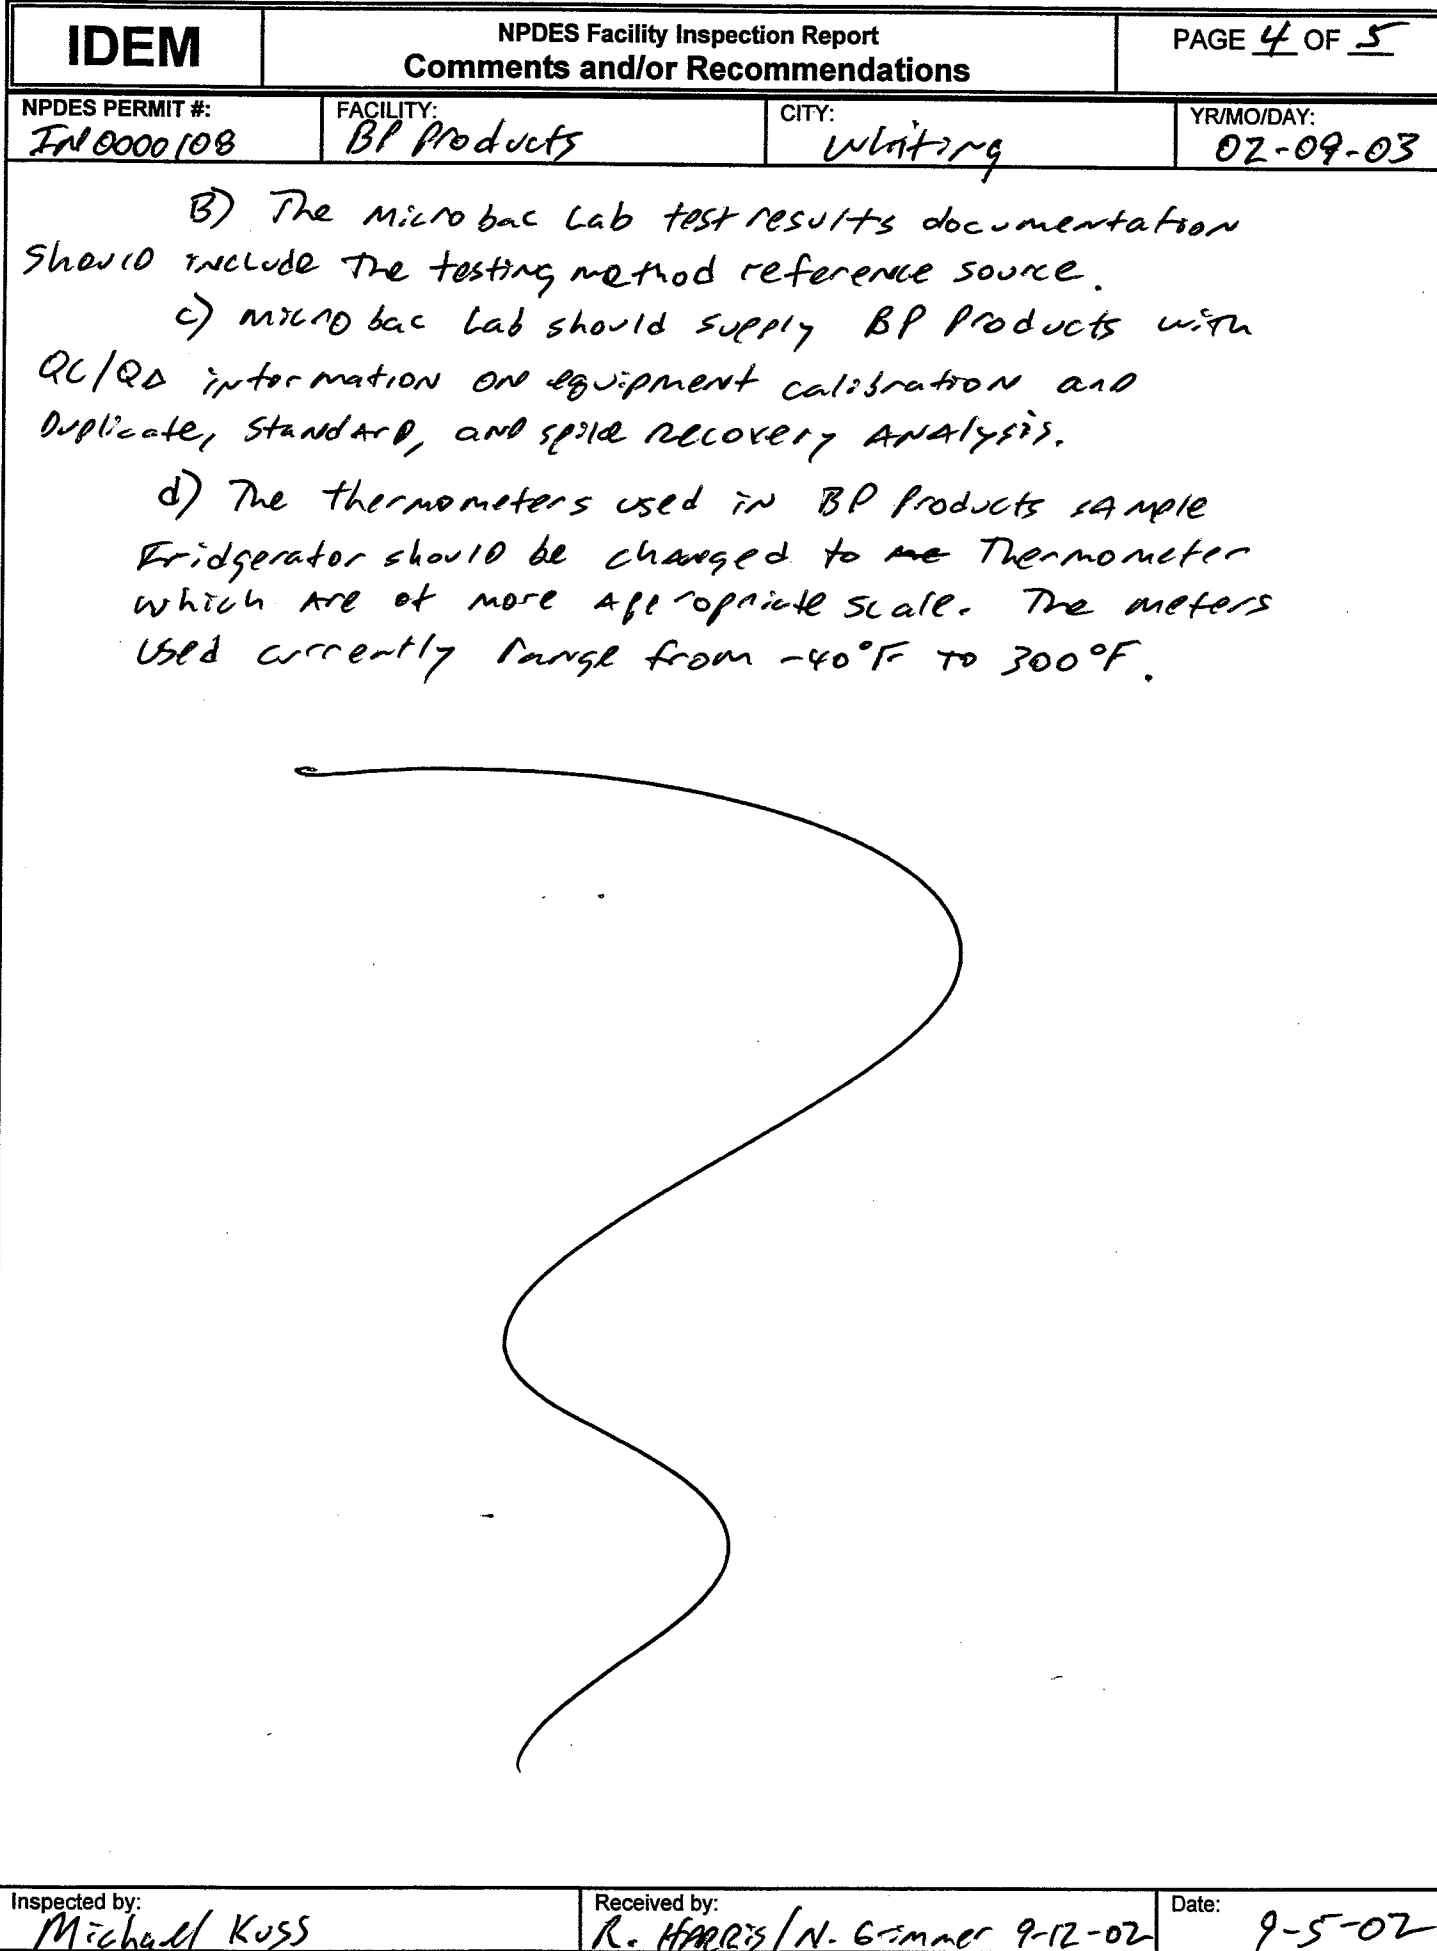 IDEM
NPDES Facility Inspection Report
Comments and/or Recommendations
PAGE 4 OF 5
NPDES PERMIT #:
IN0000108
FACILITY:
BP Products
CITY:
Whiting
YR/MO/DAY:
02-09-03
B) The Microbac Lab test results documentation
should include the testing method reference source.
c) Microbac Lab should supply BP Products with
QC/QA information on equipment calibration and
Duplicate, Standard, and spike recovery Analysis.
d) The thermometers used in BP Products sample
Fridgerator should be changed to Thermometer
which are of more appropriate scale. The meters
used currently range from -40°F to 300°F.
Inspected by:
Michael Kuss
Received by:
R. HARRIS / N. Grimmer 9-12-02
Date:
9-5-02